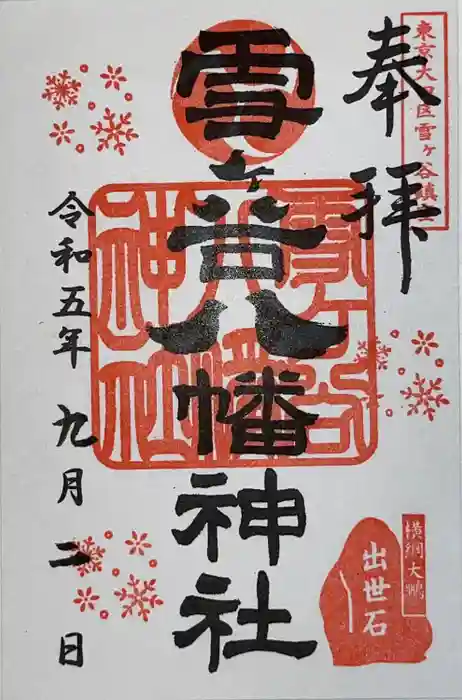 東京大田区雪ヶ谷鎮
奉拝
雪ヶ谷八幡神社
雪ヶ谷
八幡
神社
横綱大鵬
出世石
令和五年 九月 二 日